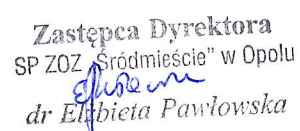 Zastępca Dyrektora
SP ZOZ „Śródmieście" w Opolu
dr Elżbieta Pawłowska